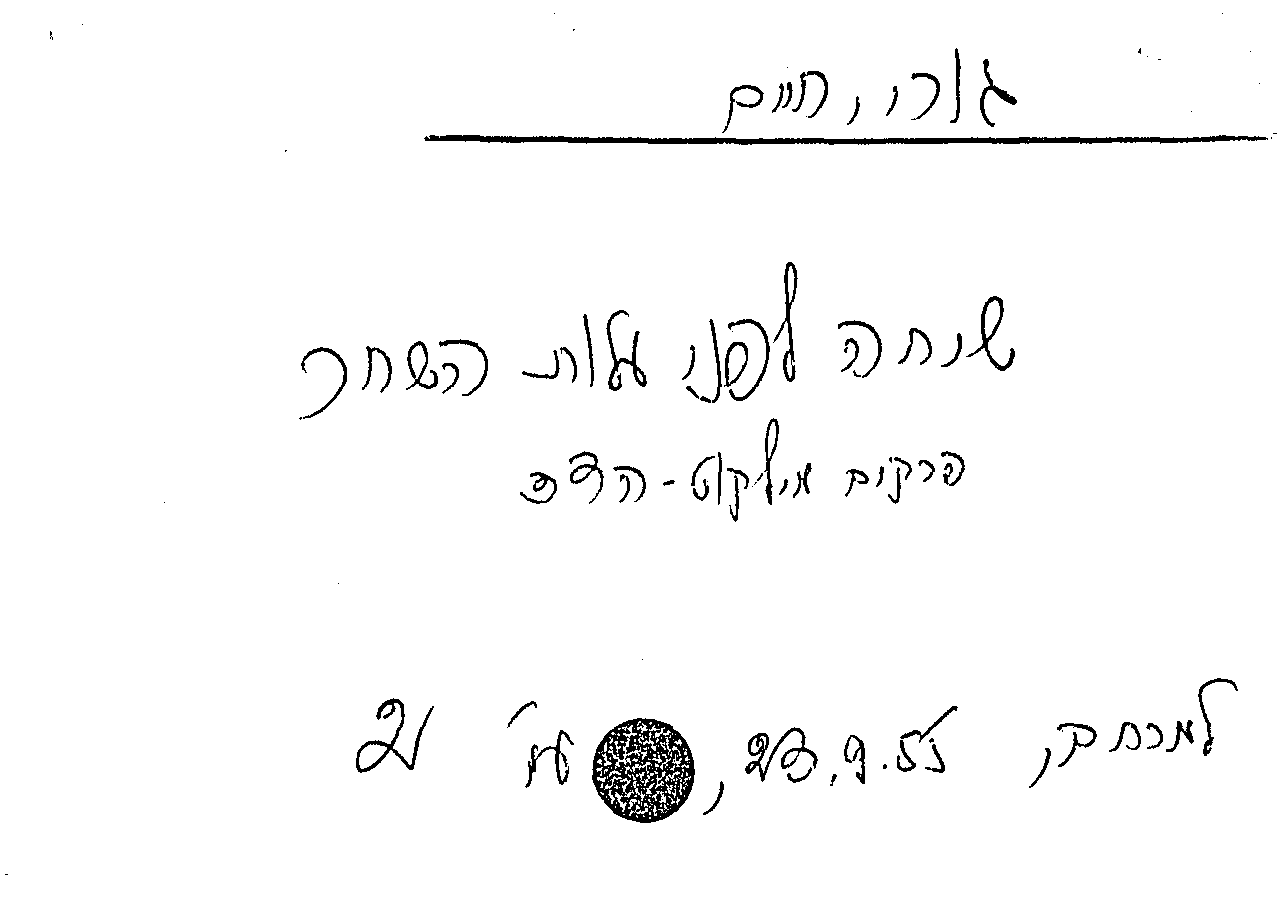 גורי, חיים
שיחה לפני עלות השחר
פרקים מילקוט-הצד
למרחב, 23.9.55, עמ'